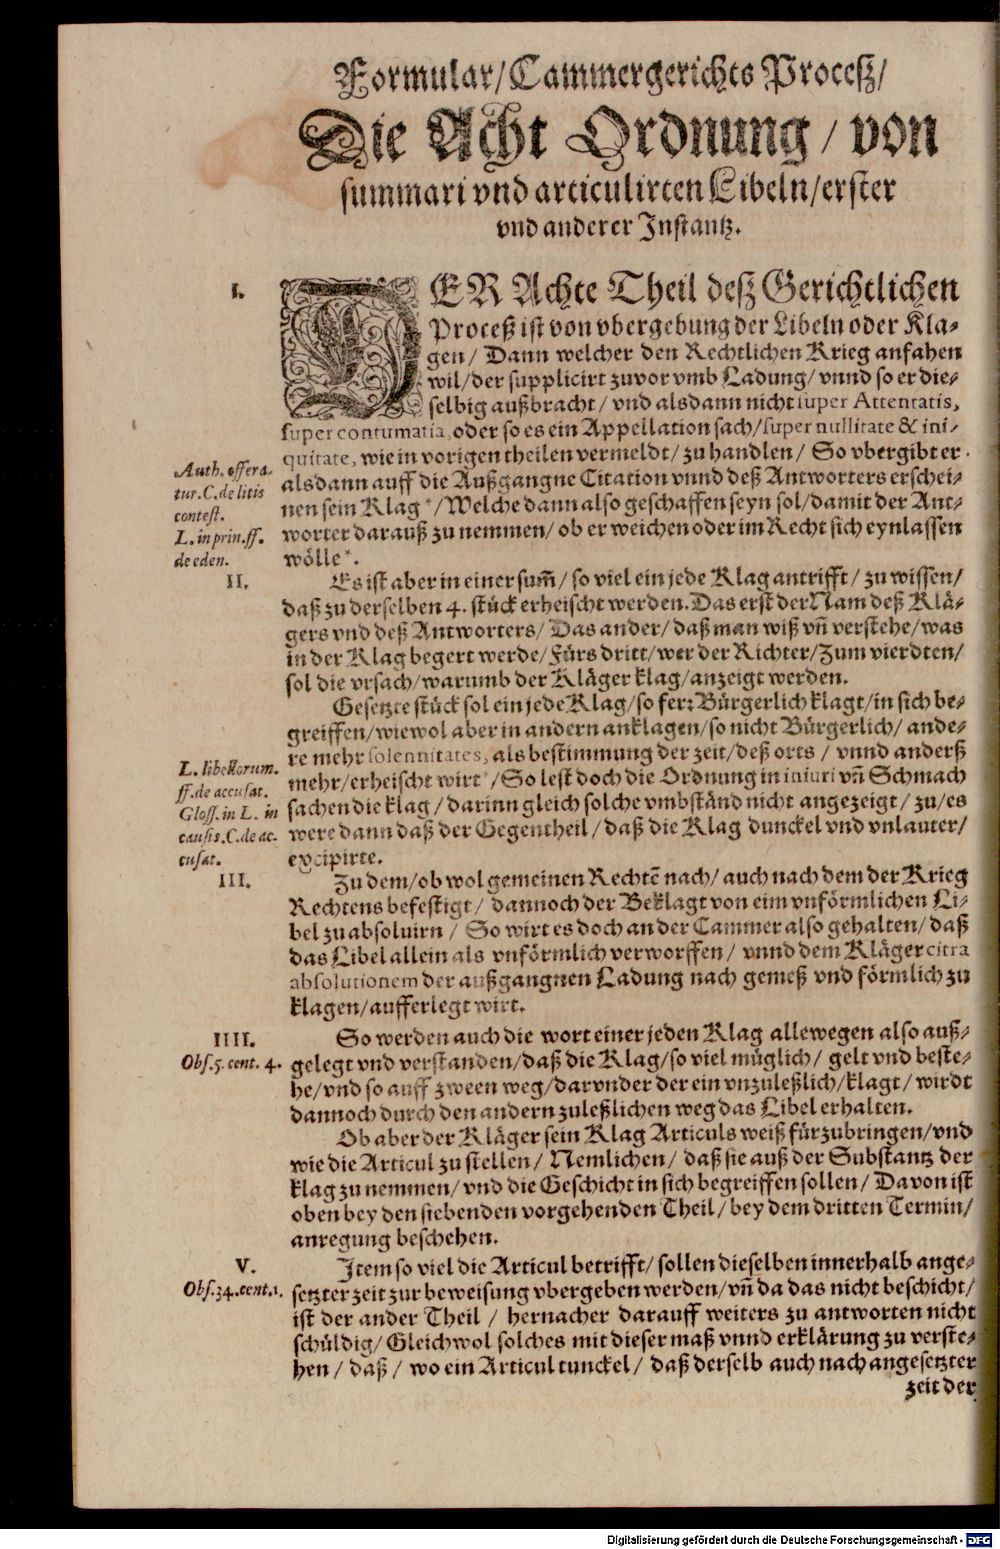 Formular/Cammergerichts Proceß/
Die Acht Ordnung / von
summari vnd articulirten Libeln/erster
vnd anderer Instantz.
I.
DER Achte Theil deß Gerichtlichen
Proceß ist von vbergebung der Libeln oder Kla-
gen / Dann welcher den Rechtlichen Krieg anfahen
wil/der supplicirt zuvor vmb Ladung/ vnnd so er die-
selbig außbracht / vnd alsdann nicht super Attentatis,
super contumatia, oder so es ein Appellation sach/super nullitate & ini-
quitate, wie in vorigen theilen vermeldt/ zu handlen / So vbergibt er
Auth. offera-
tur. C. de litis
contest.
L. in prin. ff.
de eden.
alsdann auff die Außgangne Citation vnnd deß Antworters erschei-
nen sein Klag */Welche dann also geschaffen seyn sol/damit der Ant-
worter darauß zu nemmen/ ob er weichen oder im Recht sich eynlassen
wölle*.
II.
Es ist aber in einer sum̃/ so viel ein jede Klag antrifft/ zu wissen/
daß zu derselben 4. stück erheischt werden. Das erst der Nam deß Klä-
gers vnd deß Antworters/ Das ander/ daß man wiß vñ verstehe/was
in der Klag begert werde/ Fürs dritt/ wer der Richter/Zum vierdten/
sol die vrsach/warumb der Kläger klag/anzeigt werden.
Gesetzte stück sol ein jede Klag/so ferr Bürgerlich klagt/in sich be-
greiffen/wiewol aber in andern anklagen/so nicht Bürgerlich/ ande-
re mehr solennitates, als bestimmung der zeit/deß orts / vnnd anderß
L. libellorum.
ff. de accusat.
Gloss. in L. in
causis. C. de ac-
cusat.
mehr/erheischt wirt*/So lest doch die Ordnung in iniuri vñ Schmach
sachen die klag/ darinn gleich solche vmbständ nicht angezeigt/ zu/es
were dann daß der Gegentheil/daß die Klag dunckel vnd vnlauter/
excipirte.
III.
Zu dem/ob wol gemeinen Rechtẽ nach/ auch nach dem der Krieg
Rechtens befestigt/ dannoch der Beklagt von eim vnförmlichen Li-
bel zu absoluirn / So wirt es doch an der Cammer also gehalten/ daß
das Libel allein als vnförmlich verworffen/ vnnd dem Kläger citra
absolutionem der außgangnen Ladung nach gemeß vnd förmlich zu
klagen/aufferlegt wirt.
IIII.
Obs. 5. cent. 4.
So werden auch die wort einer jeden Klag allewegen also auß-
gelegt vnd verstanden/daß die Klag/so viel müglich/ gelt vnd beste-
he/vnd so auff zween weg/darvnder der ein vnzuleßlich/klagt/ wirdt
dannoch durch den andern zuleßlichen weg das Libel erhalten.
Ob aber der Kläger sein Klag Articuls weiß fürzubringen/vnd
wie die Articul zu stellen/ Nemlichen/ daß sie auß der Substantz der
klag zu nemmen/ vnd die Geschicht in sich begreiffen sollen/ Davon ist
oben bey den siebenden vorgehenden Theil/bey dem dritten Termin/
anregung beschehen.
V.
Obs. 34. cent. 1.
Item so viel die Articul betrifft/ sollen dieselben innerhalb ange-
setzter zeit zur beweisung vbergeben werden/vñ da das nicht beschicht/
ist der ander Theil / hernacher darauff weiters zu antworten nicht
schüldig/ Gleichwol solches mit dieser maß vnnd erklärung zu verste-
hen/ daß/ wo ein Articul tunckel/ daß derselb auch nach angesetzter
zeit der
Digitalisierung gefördert durch die Deutsche Forschungsgemeinschaft - DFG